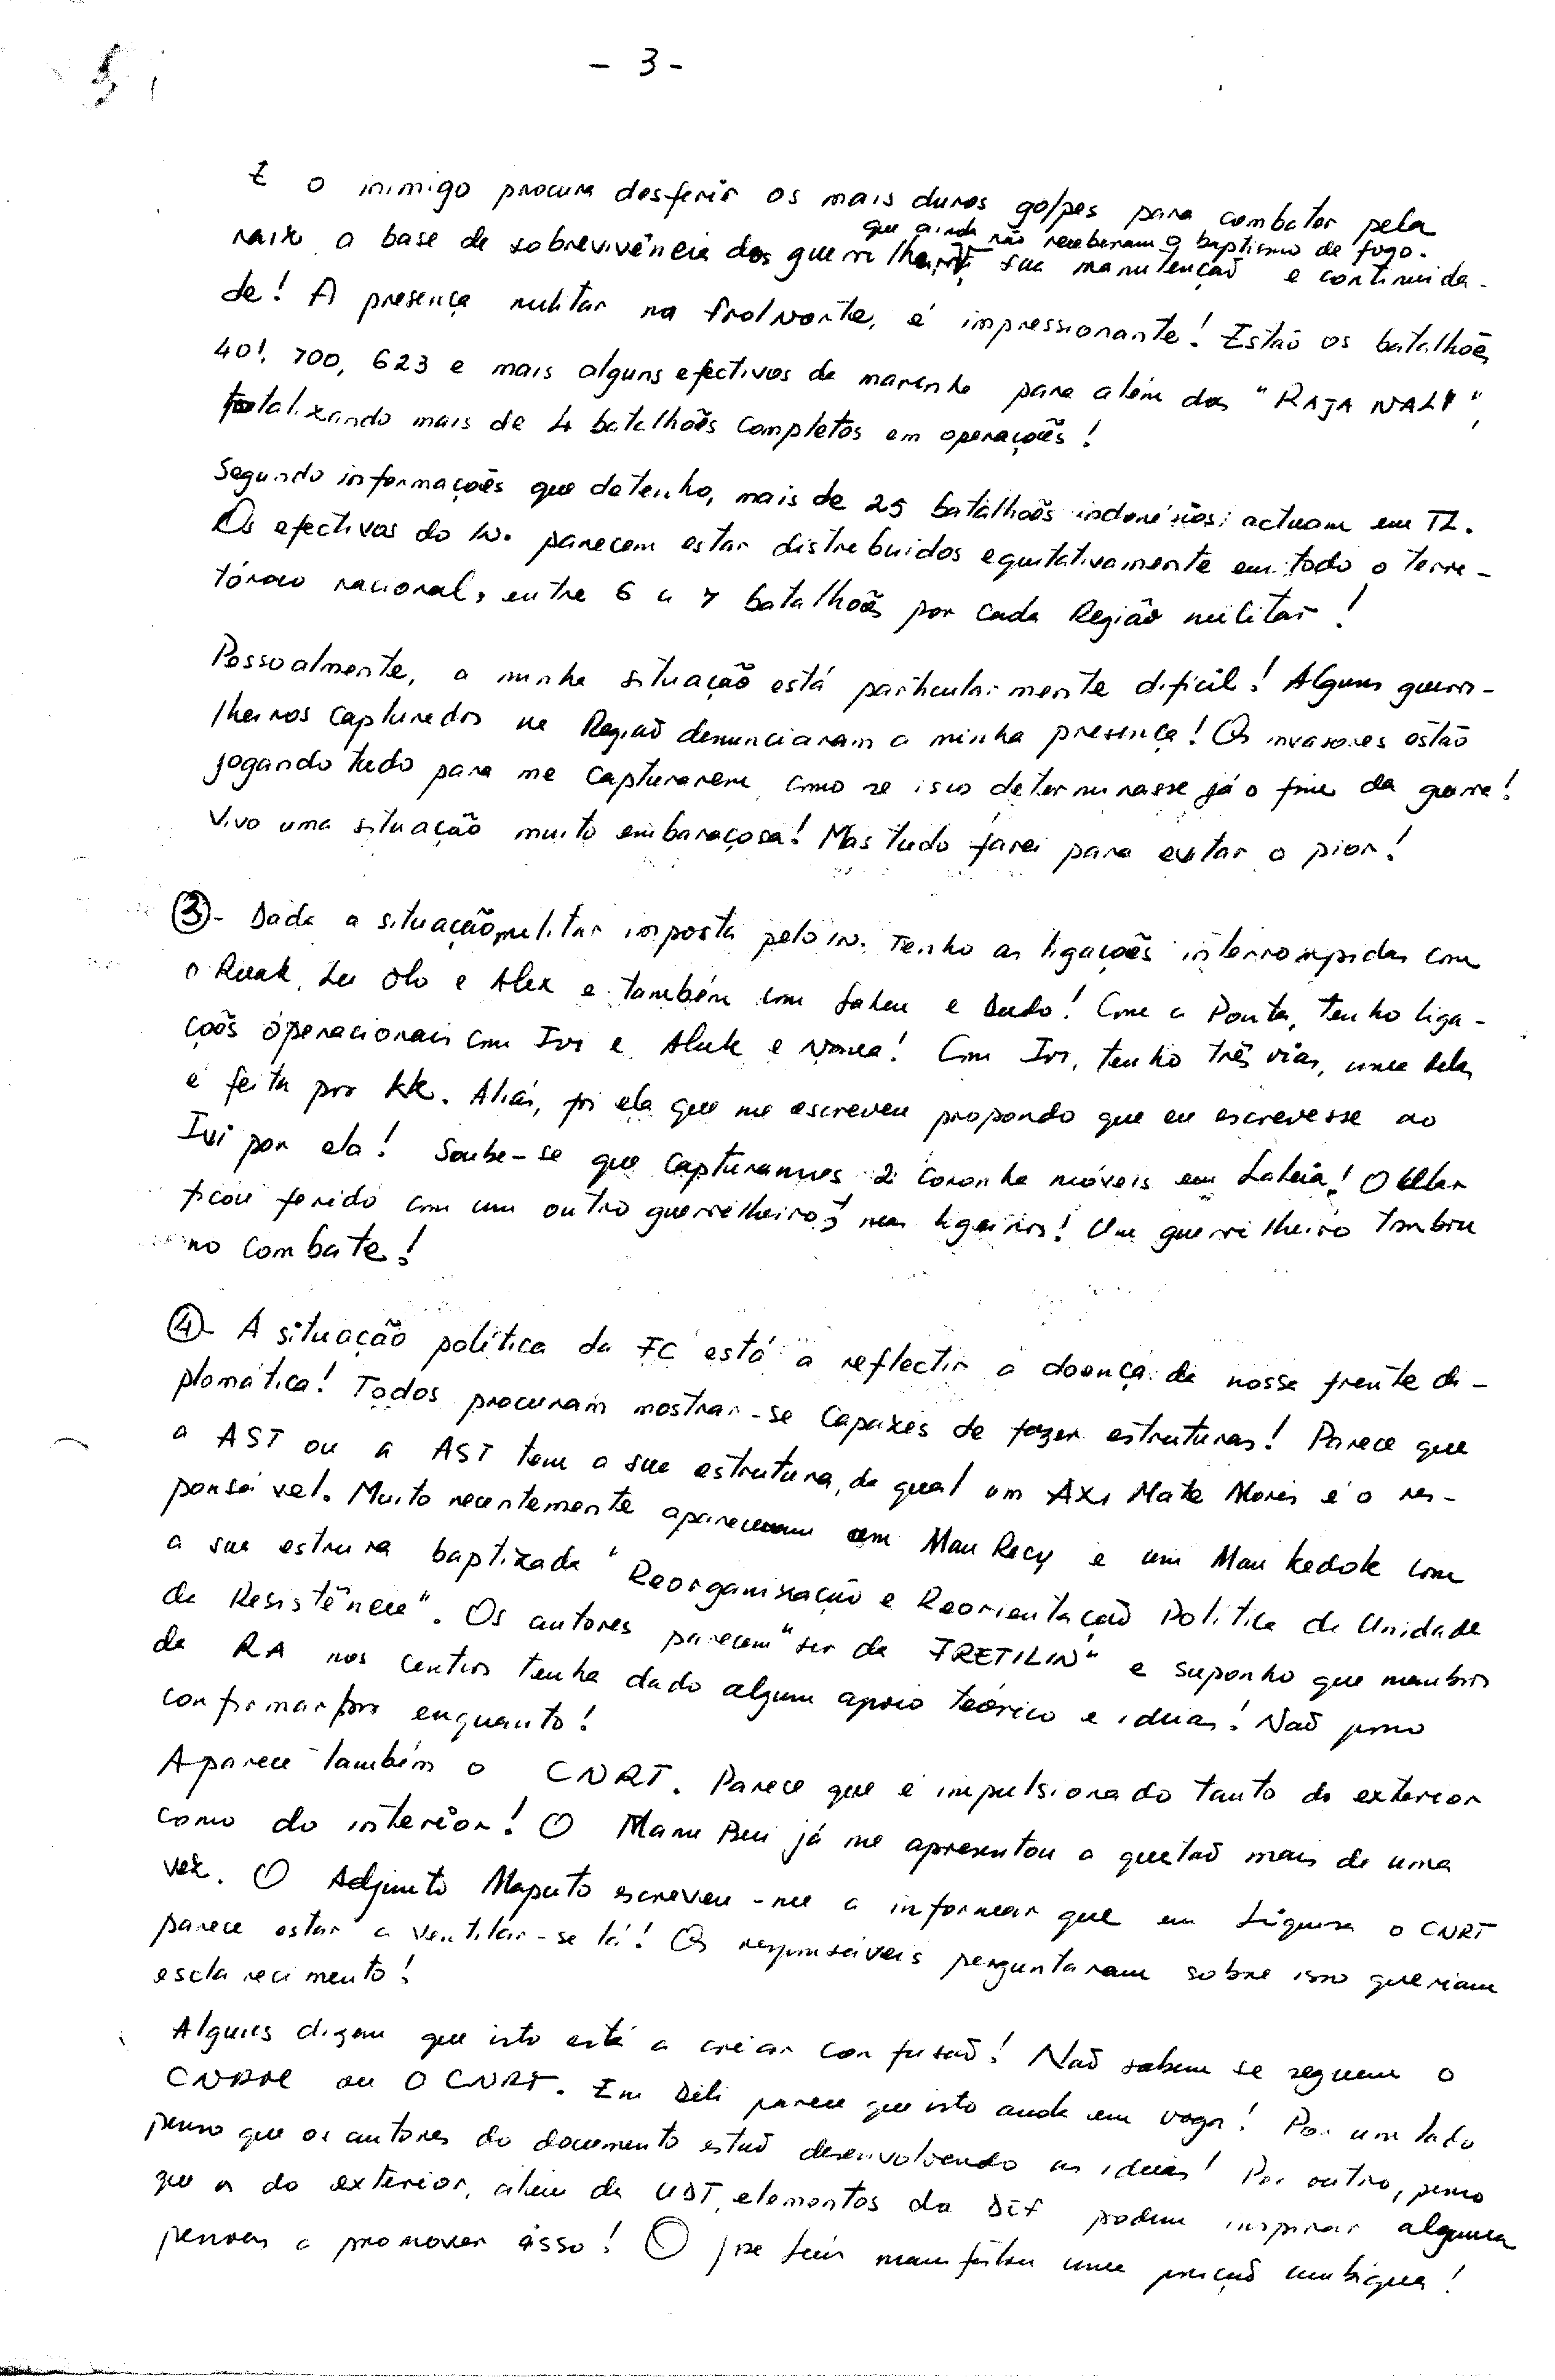 - 3 -
E o inimigo procura desferir os mais duros golpes para combater pela
que ainda não receberam o baptismo de fogo.
raix a base de sobrevivência dos guerrilheiros, sua manutenção e continuida-
de! A presença militar na Frol Norte, é impressionante! Estão os batalhões
401, 700, 623 e mais alguns efectivos da marinha para além dos "RAJAWALI",
totalizando mais de 4 batalhões completos em operações!
Segundo informações que detenho, mais de 25 batalhões indonésios actuam em TL.
Os efectivos do in. parecem estar distribuidos equitativamente em todo o terri-
tório nacional, entre 6 a 7 batalhões por cada Região militar!
Pessoalmente, a minha situação está particularmente difícil! Alguns guerri-
lheiros capturados na Região denunciaram a minha presença! Os invasores estão
jogando tudo para me capturarem como se isso determinasse já o fim da guerra!
Vivo uma situação muito embaraçosa! Mas tudo farei para evitar o pior!
3- Dada a situação militar imposta pelo in. Tenho as ligações interrompidas com
o Ruak, Lu Olo e Alex e também com Sabeu e Dudo! Com a Ponta, tenho liga-
ções operacionais com Ivi e Aluk e Nonea! Com Ivi, tenho três vias, uma delas
é feita por KK. Aliás, foi ela que me escreveu propondo que eu escrevesse ao
Ivi por ela! Soube-se que capturamos 2 coronha móveis em Laleia! O
ficou ferido com um outro guerrilheiro, mas ligeiros! Um guerrilheiro tombou
no combate!
4- A situação política da FC está a reflectir a doença da nossa frente di-
plomática! Todos procuram mostrar-se capazes de fazer estruturas! Parece que
a AST ou a AST tem a sua estrutura, da qual um Axi Mate Mores é o res-
ponsável. Muito recentemente apareceram um Mau Recy e um Mau Kedok com
a sua estrura baptizada "Reorganização e Reorientação Política da Unidade
da Resistência". Os autores parecem "ser da FRETILIN" e suponho que membros
da RA nos centros tenha dado algum apoio teórico e ideias! Não posso
confirmar por enquanto!
Aparece também o CNRT. Parece que é impulsionado tanto do exterior
como do interior! O Manu Bui já me apresentou a questão mais de uma
vez. O Adjunto Maputo escreveu-me a informar que em Liquiça o CNRT
parece estar a ventilar-se lá! Os responsáveis perguntaram sobre isso queriam
esclarecimento!
Alguns dizem que isto está a criar confusão! Não sabem se seguem o
CNRM ou O CNRT. Em Dili parece que isto anda em voga! Por um lado
penso que os autores do documento estão desenvolvendo as ideias! Por outro, penso
que os do exterior, além da UDT, elementos da DEF podem inspirar algumas
pessoas a promover isso! O José Luís manifestou uma posição ambígua!